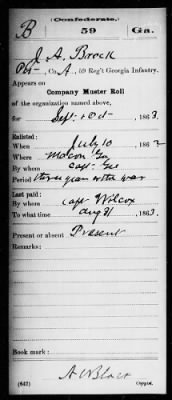 (Confederate.)
B 59 Ga.
J. A. Brock
Pvt, Co. A, 59 Reg't Georgia Infantry.
Appears on
Company Muster Roll
of the organization named above,
for Sept & Oct, 1863.
Enlisted:
When July 10, 186
Where Macon Ga
By whom Capt.
Period three years or the war
Last paid:
By whom Capt Wilcox
To what time Aug 31, 1863.
Present or absent Present
Remarks:
Book mark:
(642) Copyist.